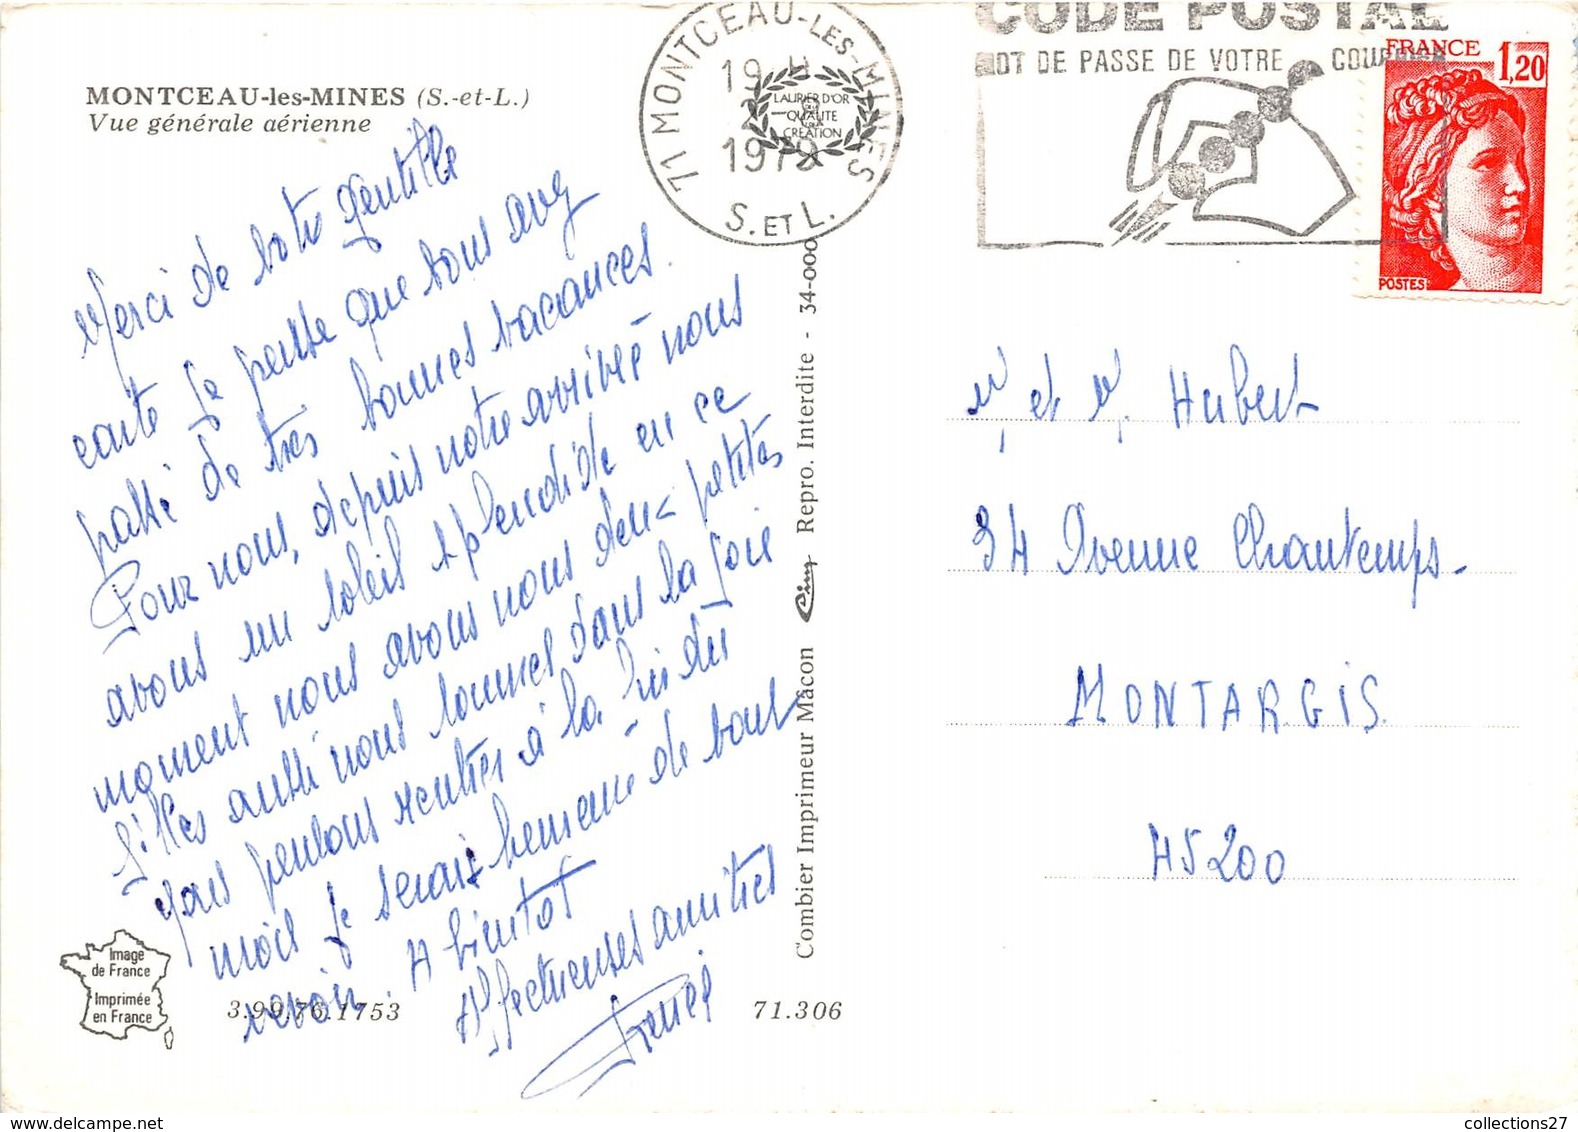 MONTCEAU-les-MINES (S.-et-L.)
Vue générale aérienne
Merci de votre gentille
carte je pense que vous avez
passé de très bonnes vacances.
Pour nous, depuis notre arrivée nous
avons un soleil splendide en ce
moment nous avons nous deux petites
filles aussi nous sommes dans la joie
nous pensons rentrer à la fin du
mois je serais heureuse de vous
revoir. A bientot
Affectueuses amitiés
Image
de France
Imprimée
en France
3.99.76.1753
71.306
Combier Imprimeur Mâcon Cim Repro. Interdite - 34-000
71 MONTCEAU-LES-MINES
19 H
2-
1979
S. ET L.
LAURIER D'OR
QUALITÉ
CRÉATION
CODE POSTAL
MOT DE PASSE DE VOTRE COURRIER
FRANCE 1,20
POSTES
et Hubert
34 Avenue Chautemps.
MONTARGIS.
45200
collections27